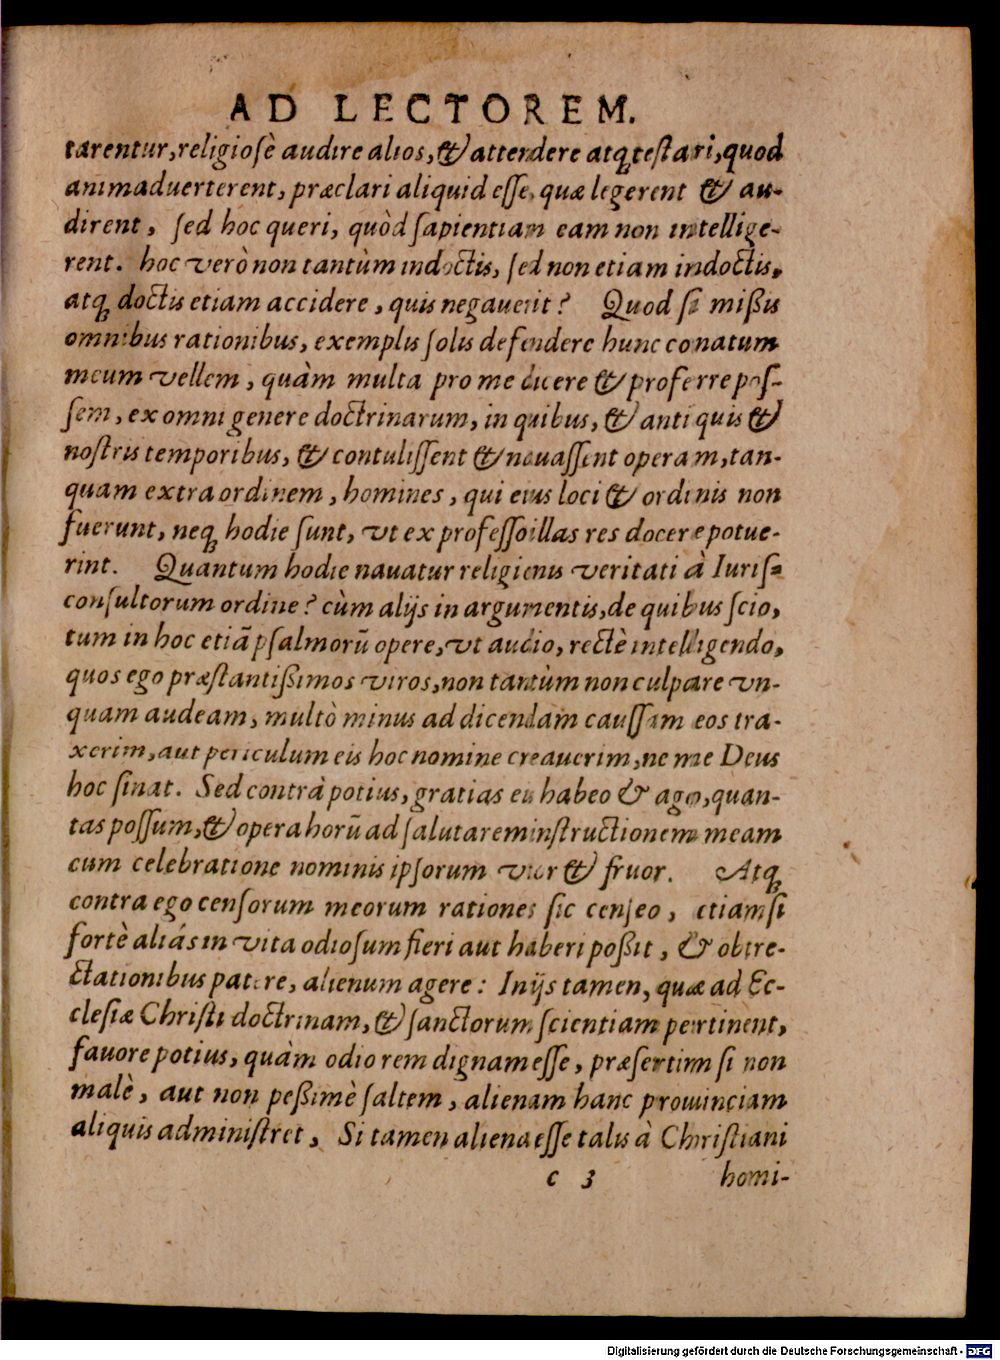 AD LECTOREM.
tarentur, religiosè audire alios, & attendere atq́ testari, quod
animaduerterent, præclari aliquid esse, quæ legerent & au-
dirent, sed hoc queri, quòd sapientiam eam non intellige-
rent. hoc verò non tantùm indoctis, sed non etiam indoctis,
atq́ doctis etiam accidere, quis negauerit? Quod si mißis
omnibus rationibus, exemplis solis defendere hunc conatum
meum vellem, quàm multa pro me dicere & proferre pos-
sem, ex omni genere doctrinarum, in quibus, & antiquis &
nostris temporibus, & contulissent & nauassent operam, tan-
quam extra ordinem, homines, qui eius loci & ordinis non
fuerunt, neq́ hodie sunt, vt ex professo illas res docere potue-
rint. Quantum hodie nauatur religionis veritati à Iuris-
consultorum ordine? cùm alijs in argumentis, de quibus scio,
tum in hoc etiā psalmorū opere, vt audio, rectè intelligendo,
quos ego præstantißimos viros, non tantùm non culpare vn-
quam audeam, multò minus ad dicendam caussam eos tra-
xerim, aut periculum eis hoc nomine creauerim, ne me Deus
hoc sinat. Sed contrà potius, gratias eis habeo & ago, quan-
tas possum, & opera horū ad salutarem instructionem meam
cum celebratione nominis ipsorum vtor & fruor. Atq́
contra ego censorum meorum rationes sic censeo, etiamsi
fortè aliás in vita odiosum fieri aut haberi poßit, & obtre-
ctationibus patere, alienum agere: In ijs tamen, quæ ad Ec-
clesiæ Christi doctrinam, & sanctorum scientiam pertinent,
fauore potius, quàm odio rem dignam esse, præsertim si non
malè, aut non peßimè saltem, alienam hanc prouinciam
aliquis administret, Si tamen aliena esse talis à Christiani
c 3 homi-
Digitalisierung gefördert durch die Deutsche Forschungsgemeinschaft - DFG